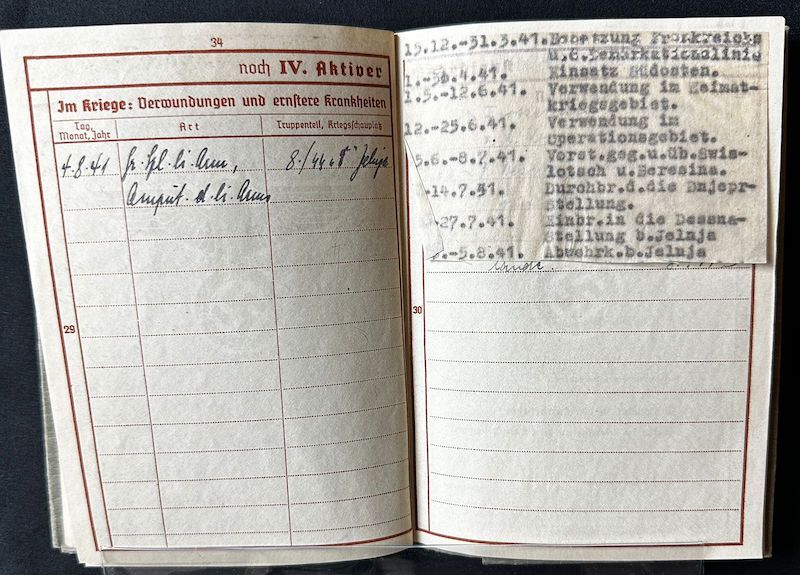 34
noch IV. Aktiver
Im Kriege: Verwundungen und ernstere Krankheiten
Tag, Monat, Jahr
Art
Truppenteil, Kriegsschauplatz
4.8.41 Gr. Spl. li. Arm, 8./ "D" Jelnja
Amput. d. li. Arms
29
15.12.-31.3.41. Besetzung Frankreichs
u.S.Demarkationslinie
1.-30.4.41. Einsatz Südosten.
1.5.-12.6.41. Verwendung im Heimat-
kriegsgebiet.
12.-25.6.41. Verwendung im
Operationsgebiet.
5.6.-8.7.41. Vorst.geg.u.üb.Swis-
lotsch u.Beresina.
-14.7.51. Durchbr.d.die Dnjepr-
stellung.
-27.7.41. Einbr.in die Dessna-
Stellung b.Jelnja
.-5.8.41. Abwehrk.b.Jelnja
30